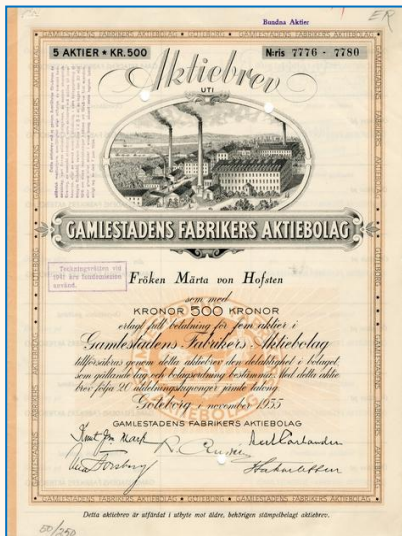 ER
Bundna Aktier
5 AKTIER ★ KR.500
N:ris 7776 - 7780
Aktiebrev
UTI
GAMLESTADENS FABRIKERS AKTIEBOLAG
Teckningsrätten vid
använd.
Fröken Märta von Hofsten
som med
KRONOR 500 KRONOR
erlagt full betalning för fem aktier i
Gamlestadens Fabrikers Aktiebolag
tillförsäkras genom detta aktiebrev den delaktighet i bolaget,
som gällande lag och bolagsordning bestämma. Med detta aktie
brev följa 20 utdelningskuponger jämte talong.
Göteborg i november 1955
GAMLESTADENS FABRIKERS AKTIEBOLAG
Detta aktiebrev är utfärdat i utbyte mot äldre, behörigen stämpelbelagt aktiebrev.
50/250